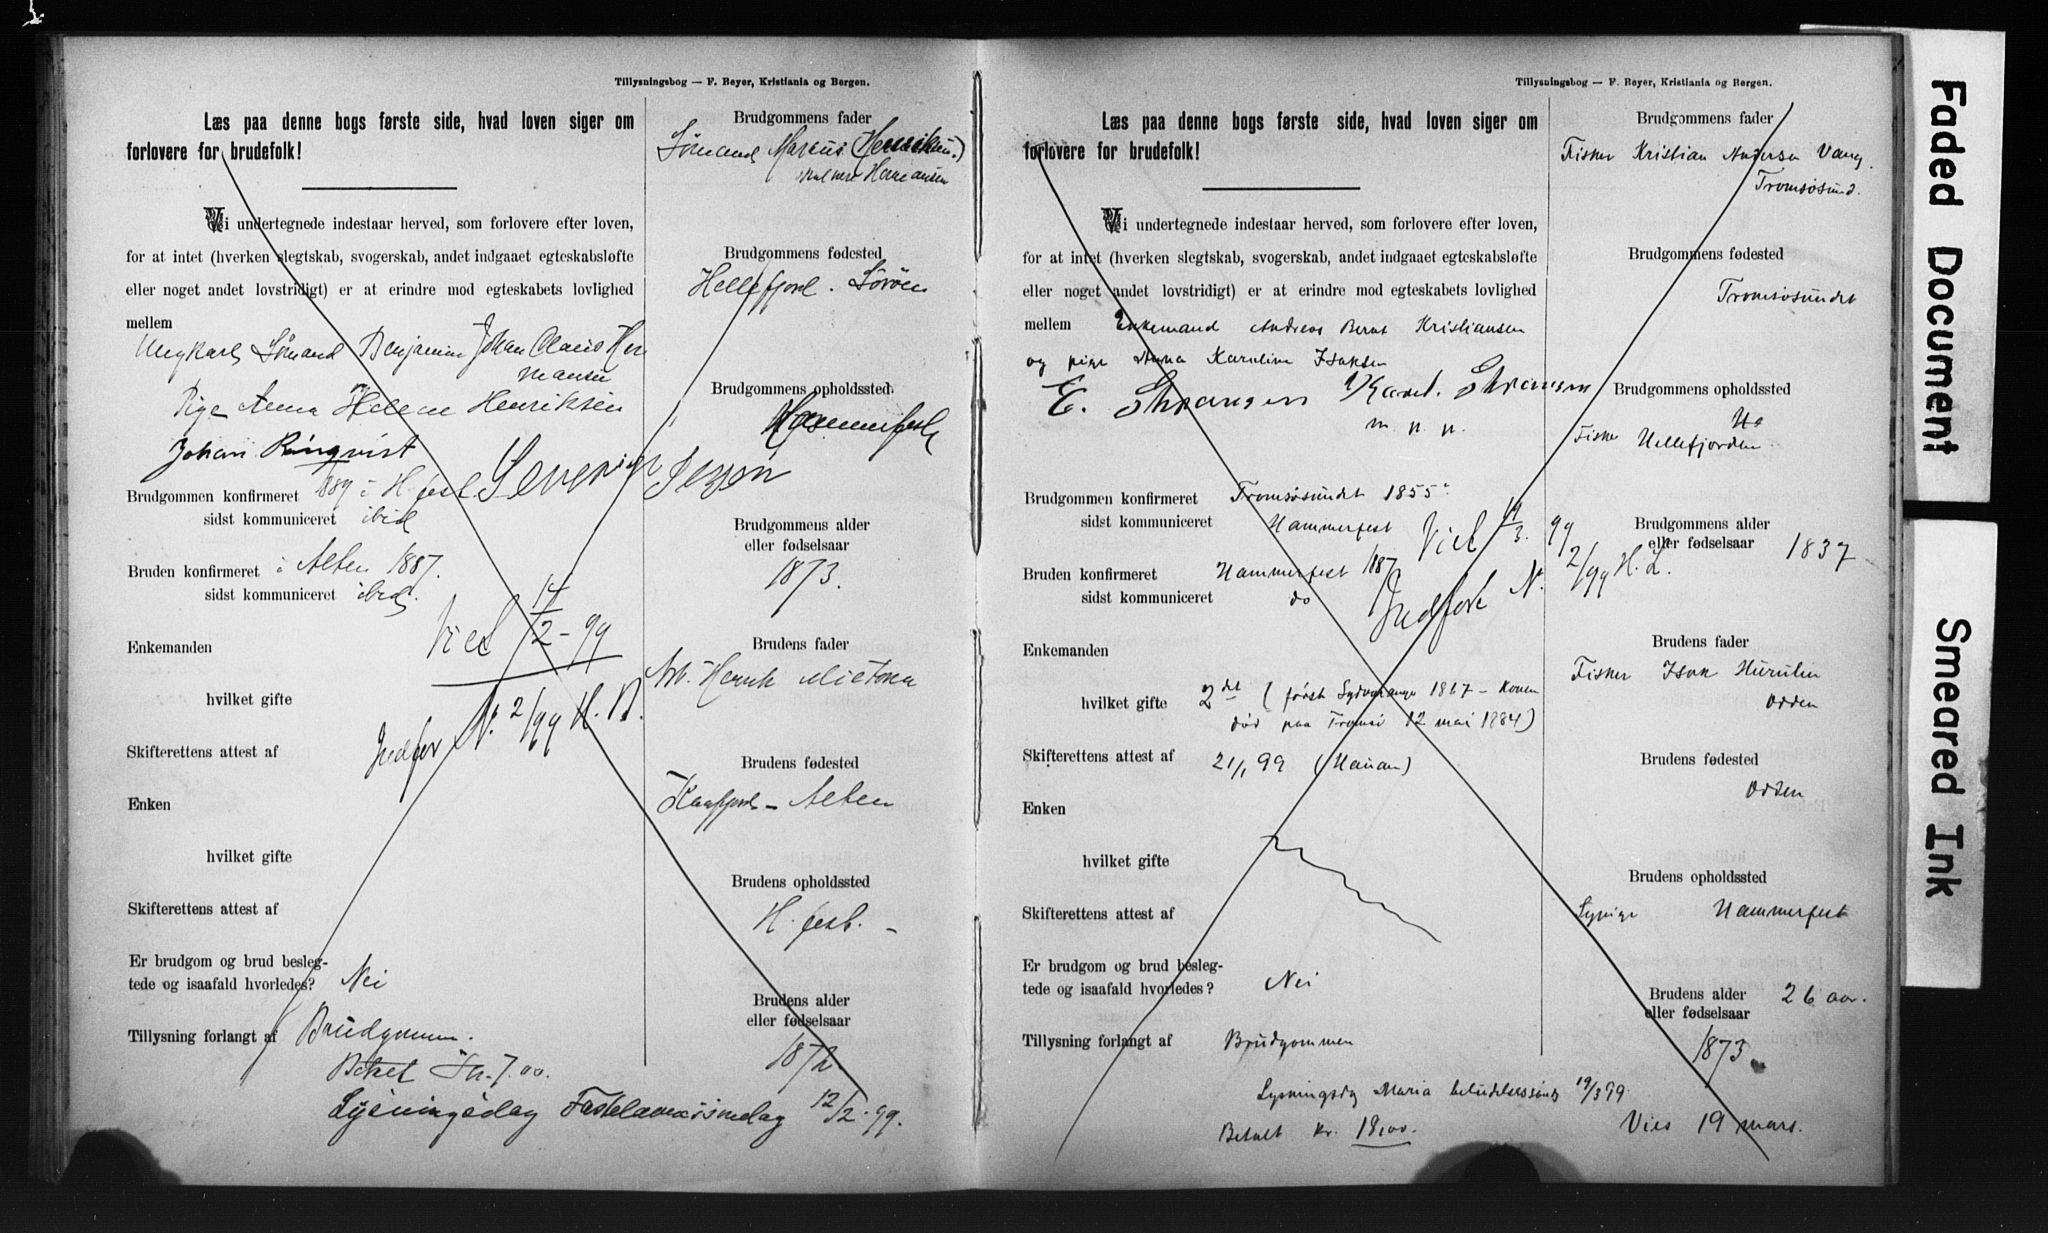 Tillysningsbog — F. Beyer, Kristiania og Bergen.
Læs paa denne bogs første side, hvad loven siger om
forlovere for brudefolk!
Vi undertegnede indestaar herved, som forlovere efter loven,
for at intet (hverken slegtskab, svogerskab, andet indgaaet egteskabsløfte
eller noget andet lovstridigt) er at erindre mod egteskabets lovlighed
mellem
Ungkarl Sømand Benjamin Johan Claus Her
mansen
Pige Anna Helene Henriksen
Johan Rinqvist
Severin
Brudgommen konfirmeret 1889 i H.fest
sidst kommuniceret ibid
Bruden konfirmeret i Alten 1887.
sidst kommuniceret ibid.
Viet 14/2-99
Enkemanden
hvilket gifte
Indført N. 2/99 H.
Skifterettens attest af
Enken
hvilket gifte
Skifterettens attest af
Er brudgom og brud besleg-
tede og isaafald hvorledes? Nei
Tillysning forlangt af Brudgommen.
Betalt Kr. 7.00.
Lysningsdag Fastelavnssøndag 12/2 99.
Brudgommens fader
Sømand Marcus Henriksen)
skal være Hermansen
Brudgommens fødested
Hellefjord. Sørøen
Brudgommens opholdssted.
Hammerfest
Brudgommens alder
eller fødselsaar
1873.
Brudens fader
Arb. Henrik
Brudens fødested
Kaafjord - Alten
Brudens opholdssted
H.fest. -
Brudens alder
eller fødselsaar
1872
Tillysningsbog — F. Beyer, Kristiania og Bergen.
Læs paa denne bogs første side, hvad loven siger om
forlovere for brudefolk!
Vi undertegnede indestaar herved, som forlovere efter loven,
for at intet (hverken slegtskab, svogerskab, andet indgaaet egteskabsløfte
eller noget andet lovstridigt) er at erindre mod egteskabets lovlighed
mellem Enkemand Andreas Bernt Kristiansen
og pige Anna Karoline Isaksen
E.
m. p. p.
Brudgommen konfirmeret Tromsøsundet 1855
sidst kommuniceret Hammerfest
Viet 19/3. 99
Bruden konfirmeret Hammerfest 1887
sidst kommuniceret do
Indført N. 2/99 H. L.
Enkemanden
hvilket gifte 2det (først Sydvaranger 1867 - Konen
død paa Tromsø 12 mai 1884)
Skifterettens attest af 21/1 99
Enken
hvilket gifte
Skifterettens attest af
Er brudgom og brud besleg-
tede og isaafald hvorledes? Nei
Tillysning forlangt af Brudgommen
Lysningsdag Maria 19/3 99
Betalt Kr. 18,00.
Brudgommens fader
Fisker Kristian Andersen Vang
Tromsøsund.
Brudgommens fødested
Tromsøsundet
Brudgommens opholdssted
Fisker Hellefjorden
Brudgommens alder
eller fødselsaar 1837
Brudens fader
Fisker Isak
Odden
Brudens fødested
Odden
Brudens opholdssted
Hammerfest
Brudens alder 26 aar.
eller fødselsaar
1873
Vies 19 mars.
Faded Document
Smeared Ink